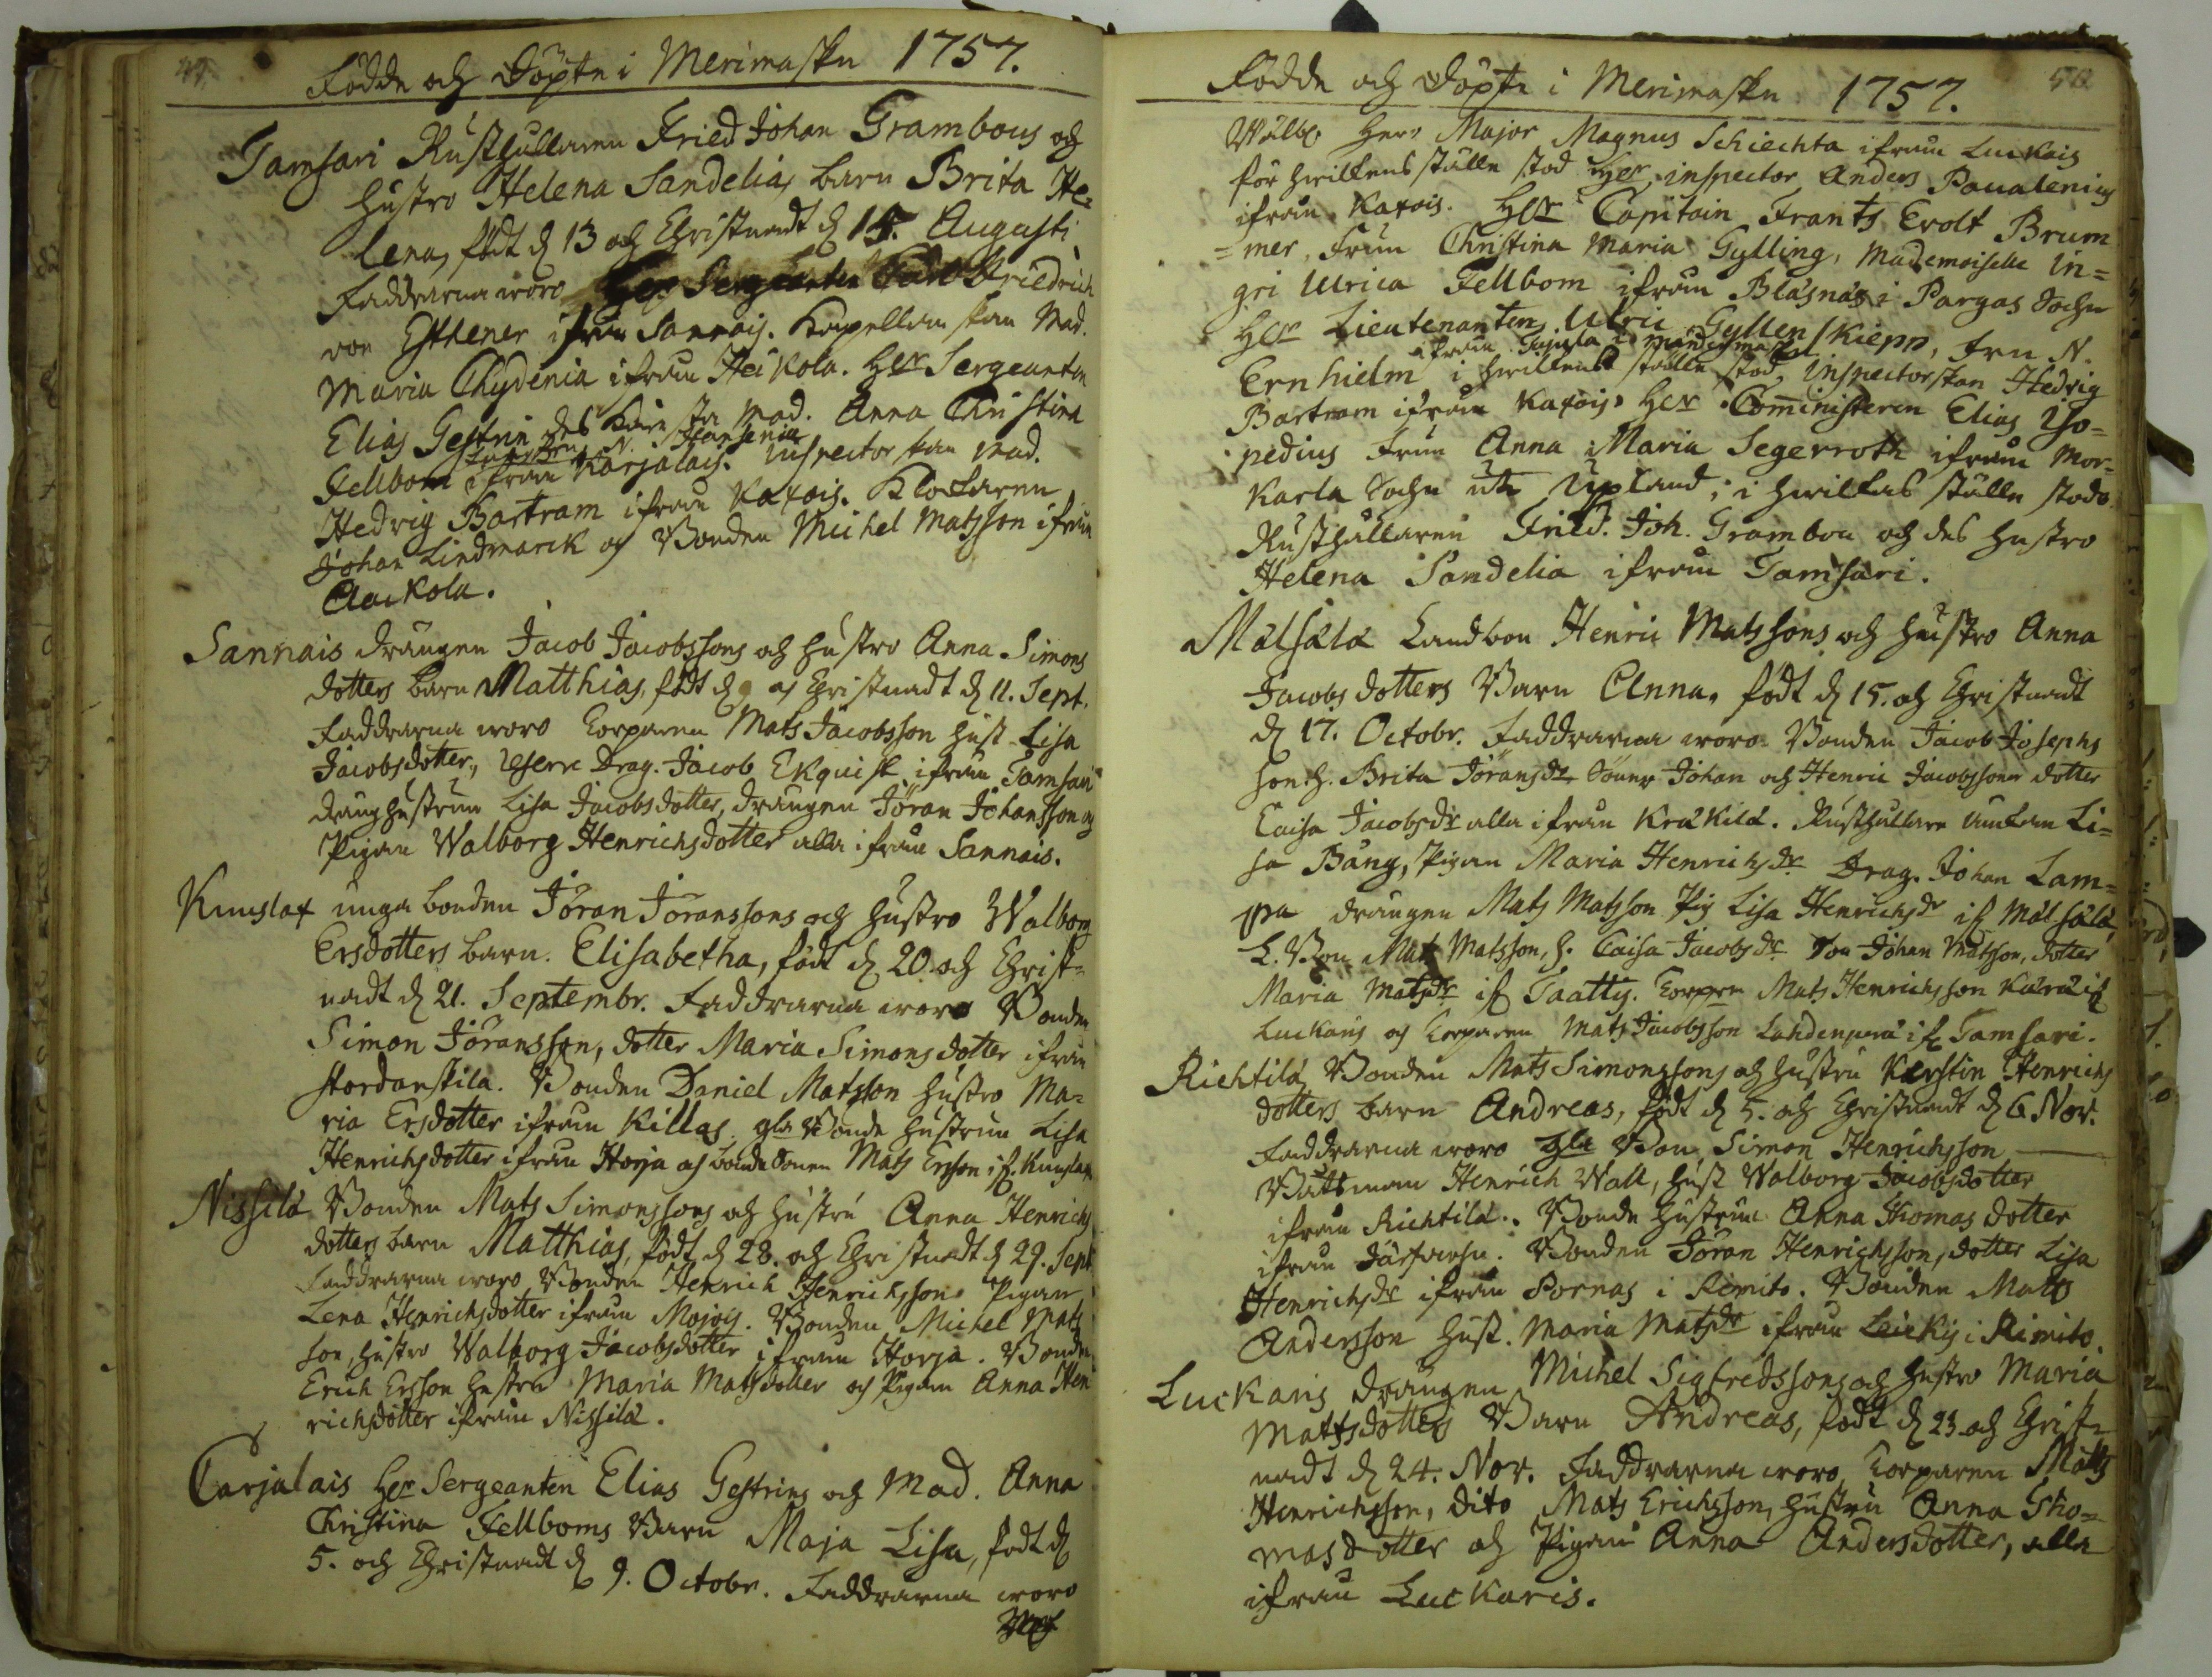 Födde och Döpte i Merimasku 1757.
Tamsari Rusthållaren Fried Johan Grambous och
hustro Helena Sandelias barn Brita He=
lena, födt d 13 och Christnadt d 15. Augusti
Faddrarna woro Her Sergeanten Friedrich
von Esthener ifrån Sannais. Kapellanskan Mad.
Maria Chydenia ifrån Heikola. Her Sergeanten
Elias Gestrin des Kära Mad. Anna Christina
Fellbom ifrån Karjalais. Inspectorskan Mad.
Hedvig Bartram ifrån Kaxois. Klockaren
Johan Lindmarck och Bonden Michel Matsson ifrån
Ackola.
Sannais drängen Jacob Jacobssons och hustro Anna Simons
dotters barn Matthias, födt d 9 och Christnadt d 11. Sept.
Faddrarna woro Torparen Mats Jacobsson hust Lisa
Jacobsdotter, Reserve Drag. Jacob Ekquist ifrån Tamsari
dräng hustrun Lisa Jacobsdotter, drängen Jöran Johansson och
Pigan Walborg Henrichsdotter alla ifrån Sannais.
Kunslax unga bonden Jöran Jöranssons och hustro Walborg
Ersdotters barn. Elisabetha, födt d 20. och Christ=
nadt d 21. Septembr. Faddrarna woro Bonden
Simon Jöransson, dotter Maria Simonsdotter ifrån
Stordanskila. Bonden Daniel Matsson hustro Ma=
ria Ersdotter ifrån Killas, gla Bonde hustrun Lisa
Henrichsdotter ifrån Horja och bonde Sonen Mats Ersson if. Kunslax
Nissilä Bonden Mats Simonssons och hustru Anna Henrichs
dotters barn Matthias, födt d 28. och Christnadt d 29. Sept
Faddrarna woro Bonden Henrich Henrichsson Pigan
Lena Henrichsdotter ifrån Mojois. Bonden Michel Mats
son, hustro Walborg Jacobsdotter ifrån Horja. Bonden
Erich Ersson hustru Maria Matsdotter och Pigan Anna Hen
richsdotter ifrån Nissilä.
Carjalais Her Sergeanten Elias Gestrins och Mad. Anna
Christina Fellboms Barn Maja Lisa, födt d
5. och Christnadt d 9. Octobr. Faddrarna woro
Födde och Döpte i Merimasku 1757. 50
Wälb. Herr Major Magnus Schiechta ifrån Luckais
för hwilkens ställe stod Her inspector Anders Paualenius
ifrån Kaxois. Her Capitain Frants Evolt Brum
=mer, Frun Christina Maria Gylling, Mademoiselle In=
gri Ulrica Fellbom ifrån Bläsnäs i Pargas Sochn
Her Lieutenanten Ulric Gyllenskiepp, fru N.
Ernhielm i hwilkens ställe stod Inspectorskan Hedvig
Bartram ifrån Kaxois. Her Comministeren Elias Iso=
pedius Frun Anna Maria Segerroth ifrån Mor=
karla Sochn uti Upland; i hwilkas ställe stodo
Rusthållaren Fried. Joh. Grambou och des hustro
Helena Sandelia ifrån Tamsari.
Mälsälä Landbon Henric Matssons och hustro Anna
Jacobsdotters Barn Anna, födt d 15. och Christnadt
d 17. Octobr. Faddrarna woro Bonden Jacob Josephs
son h. Brita Jöransdr Söner Johan och Henric Jacobssoner dotter
Caisa Jacobsdr alla ifrån Kräkilä. Rusthållare Enkan Li=
sa Bång, Pigan Maria Henrichsdr Drag. Johan Lam=
pa drängen Mats Matsson Pig Lisa Henrichsdr if Mälsälä,
L. Bon Mats Matsson, h. Caisa Jacobsdr Son Johan Matsson, dotter
Maria Matsdr if Taattis. Torpen Mats Henrichsson Kärä if
Luckaris och Torparen Mats Jacobsson Lahdenperä if Tamsari.
Riehtilä Bonden Mats Simonssons och hustru Kerstin Henrichs
dotters barn Andreas, födt d 5. och Christnadt d 6 Nov.
Faddrarna woro gla Bon Simon Henrichsson
Båtsman Henrich Wall, hust Walborg Jacobsdotter
ifrån Riehtilä. Bonde hustrun Anna Thomasdotter
ifrån Bonden Jöran Henrichsson, dotter Lisa
Henrichsdr ifrån Pornas i Remito. Bonden Matts
Andersson Hust. Maria Matsdr ifrån Leickis i Rimito.
Luckaris drängen Michel Sigfredssons och hustro Maria
Mattsdotters Barn Andreas, födt d 23 och Christ=
nadt d 24. Nov. Faddrarna woro, Torparen Matts
Henrichsson, dito Mats Erichsson, hustru Anna Tho=
masdotter och Pigan Anna Andersdotter, alla
ifrån Luckaris.